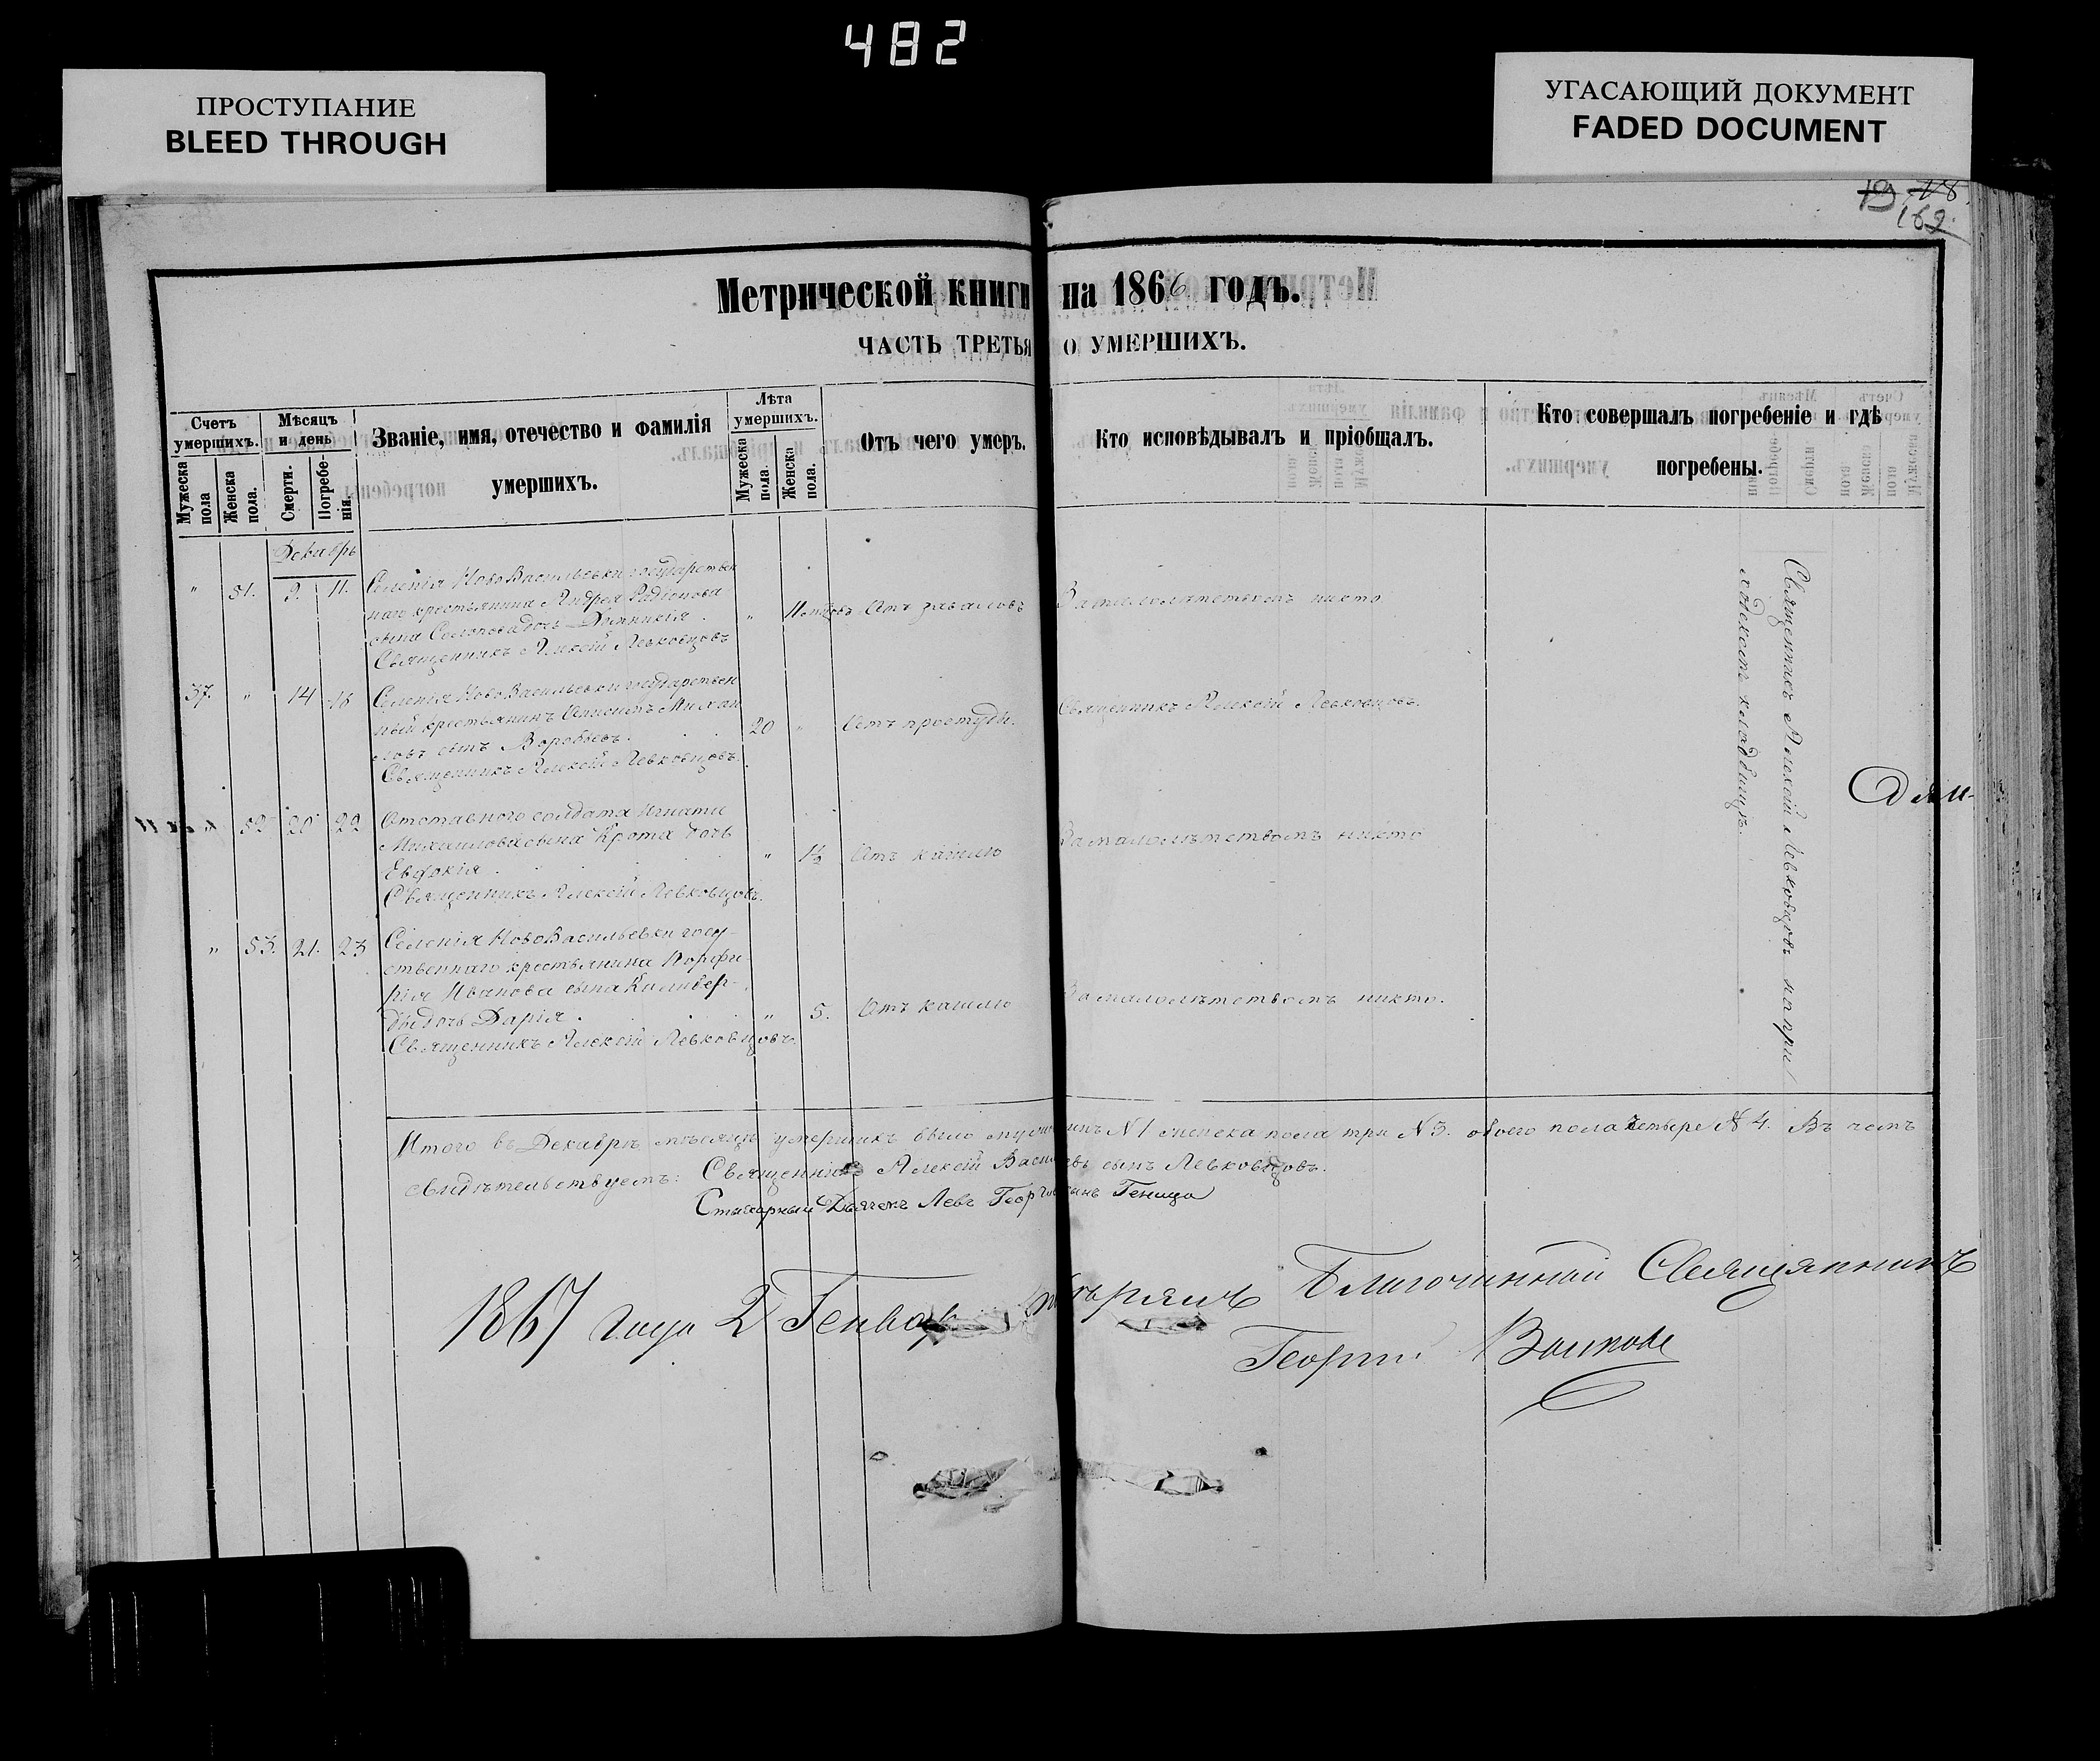 482
ПРОСТУПАНИЕ
BLEED THROUGH
УГАСАЮЩИЙ ДОКУМЕНТ
FADED DOCUMENT
19 18
162.
Метрической книги на 1866 годъ.
ЧАСТЬ ТРЕТЬЯ О УМЕРШИХЪ.
Счетъ умершихъ.
Мужеска пола
Женска пола.
Мѣсяцъ и день
Смерти.
Погребенія.
Званіе, имя, отечество и фамилія
умершихъ.
Лѣта умершихъ.
Мужеска пола.
Женска пола.
Отъ чего умеръ.
Кто исповѣдывалъ и пріобщалъ.
Кто совершалъ погребеніе и гдѣ
погребены.
Декабрь
" 51. 9. 11. Селенія НовоВасильевки государствен
наго крестьянина Андрея Радіонова
сына дочь Домникія.
Священникъ Алексій Левковцовъ
" Отъ
За малолѣтствомъ никто.
37. " 14 16 Селенія НовоВасильевки государствен
ный крестьянинъ Михаи
ловъ сынъ Воробьевъ.
Священникъ Алексій Левковцовъ.
20 " Отъ простуды.
Священникъ Алексій Левковцовъ.
52 20 22 Отставного солдата Игнатія
Михаилова сына Крота дочь
Евдокія.
Священникъ Алексій Левковцовъ.
" 1½ Отъ кашлю
За малолѣтствомъ никто
" 53. 21. 23 Селенія НовоВасильевки госу-
ственнаго крестьянина Порфи
рія Иванова сына
дочь Дарія.
Священникъ Алексій Левковцовъ.
" 5. Отъ кашлю
За малолѣтствомъ никто.
Священникъ Алексій Левковцовъ на при
ходскомъ кладбищѣ.
Итого въ Декабрѣ мѣсяцѣ умершихъ было мужчинъ №1 женска пола три №3. обоего пола четыре №4. Въ чемъ
свидѣтельствуемъ: Священникъ Алексій Васильевъ сынъ Левковцовъ.
Стихарный Дьячекъ Левъ Георгіевъ сынъ Геница
1867 года 2 Генвар повѣрялъ Благочинный Священникъ
Георгій Волковъ